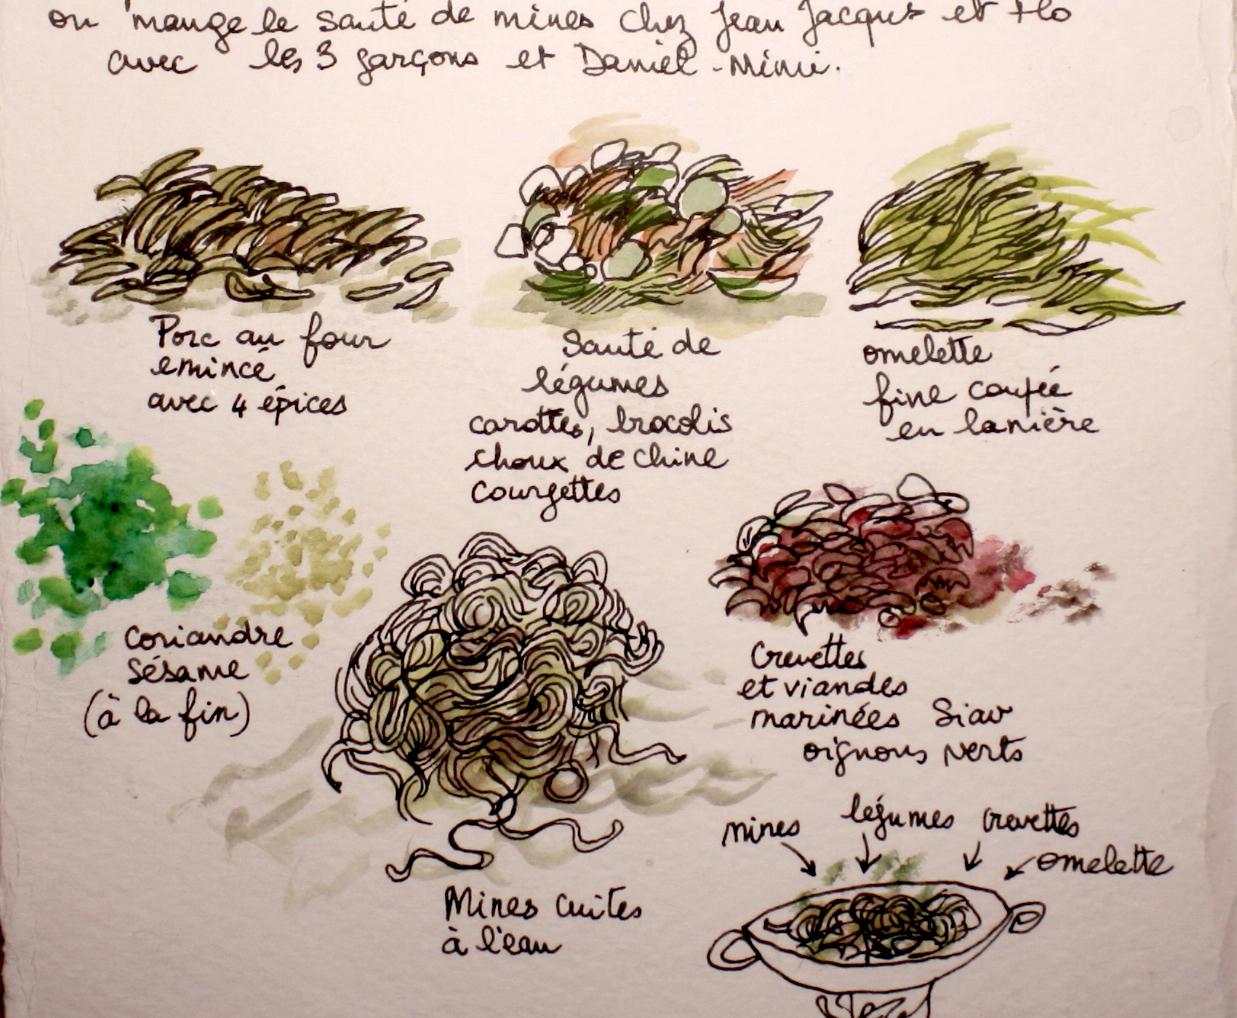 on mange le sauté de mines chez Jean Jacques et Flo
avec les 3 garçons et Daniel - Mimi.
Porc au four
emincé
avec 4 épices
Sauté de
légumes
carottes, brocolis
choux de chine
courgettes
omelette
fine coupée
en lanière
Coriandre
sésame
(à la fin)
Crevettes
et viandes
marinées Siav
oignons verts
Mines cuites
à l'eau
mines légumes crevettes
omelette